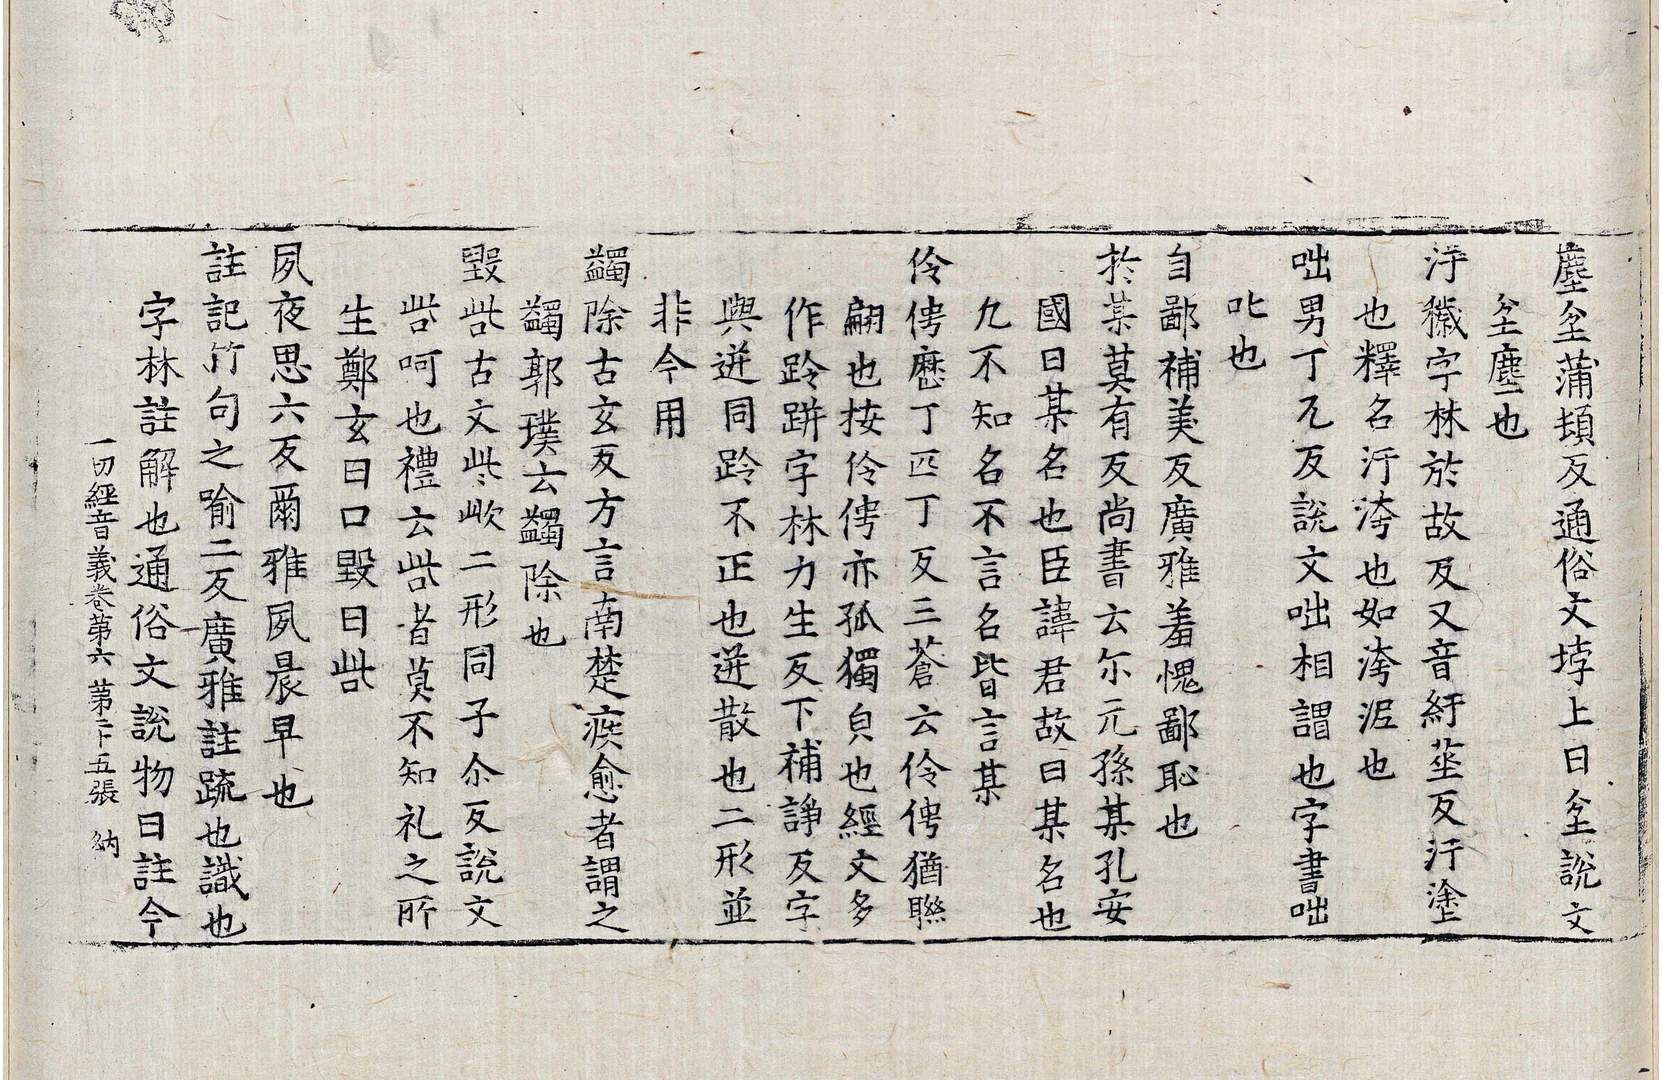 塵坌蒲頓反通俗文垺土曰坌說文
坌塵也
汙穢字林於故反又音紆莝反汙塗
也釋名汙洿也如洿泥也
咄男丁兀反說文咄相謂也字書咄
叱也
自鄙補美反廣雅羞愧鄙恥也
於某莫有反尚書云尒元孫某孔安
國曰某名也臣諱君故曰某名也
九不知名不言名皆言某
伶俜歷丁匹丁反三蒼云伶俜猶聯
翩也按伶俜亦孤獨皃也經文多
作跉跰字林力生反下補諍反字
與迸同跉不正也迸散也二形並
非今用
蠲除古玄反方言南楚疾愈者謂之
蠲郭璞云蠲除也
毀呰古文㱔欪二形同子尒反說文
呰呵也禮云呰者莫不知礼之所
生鄭玄曰口毀曰呰
夙夜思六反爾雅夙晨早也
註記竹句之喻二反廣雅註疏也識也
字林註解也通俗文說物曰註今
一切經音義卷第六 第二十五張 納